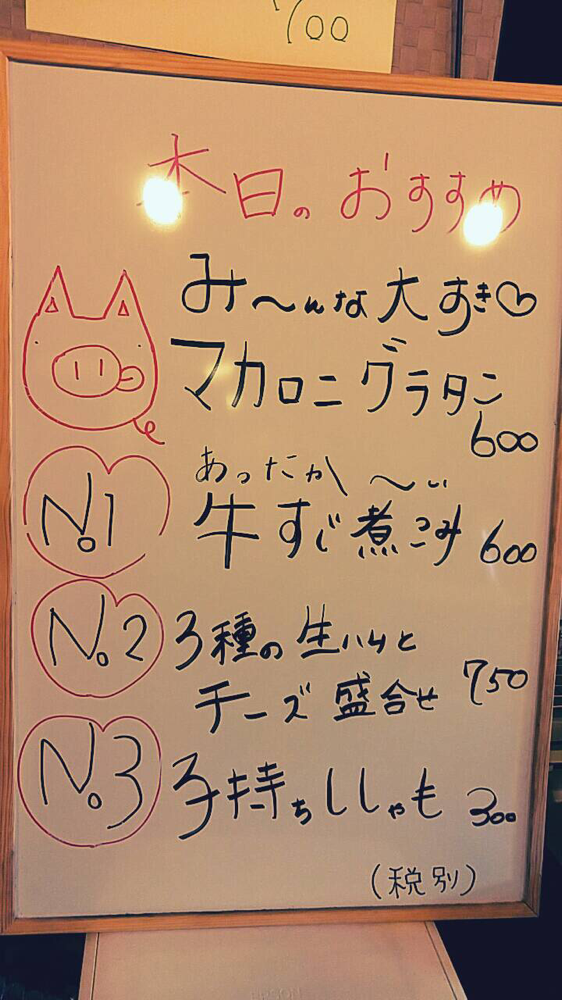 700
本日のおすすめ
み〜んな大すき♡
マカロニグラタン
600
あったか〜い
No.1
牛すじ煮こみ 600
No.2
3種の生ハムと
チーズ盛合せ 750
No.3
子持ちししゃも 300
(税別)
EPSON